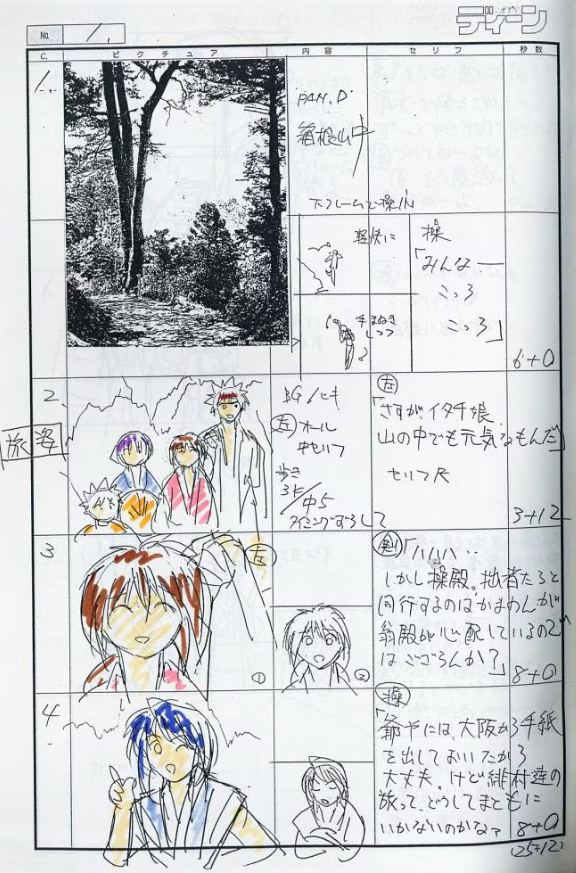 No. 1.
ディーン
C. ピクチュア 内容 セリフ 秒数
1.
PAN.D
箱根山中
下フレームで操IN
軽快に
手まねきしつつ
操
「みんなー
こっろ
こっろ」
6+0
旅姿
2
BG/ヒキ
左 オール
中セリフ
歩き
中5
タイミングずらして
左
「さすがイタチ娘.
山の中でも元気なもんだ」
セリフ尺
3+12
3
左
①
②
剣
「ハハハ‥
しかし操殿。拙者たちと
同行するのはかまわんが
翁殿が心配しているので
はござろんか?」
8+0
4
操
「爺やには、大阪から手紙
を出しておいたから
大丈夫。けど緋村達の
旅って、どうしてまともに
いかないのかなァ
8+0
(25+12)